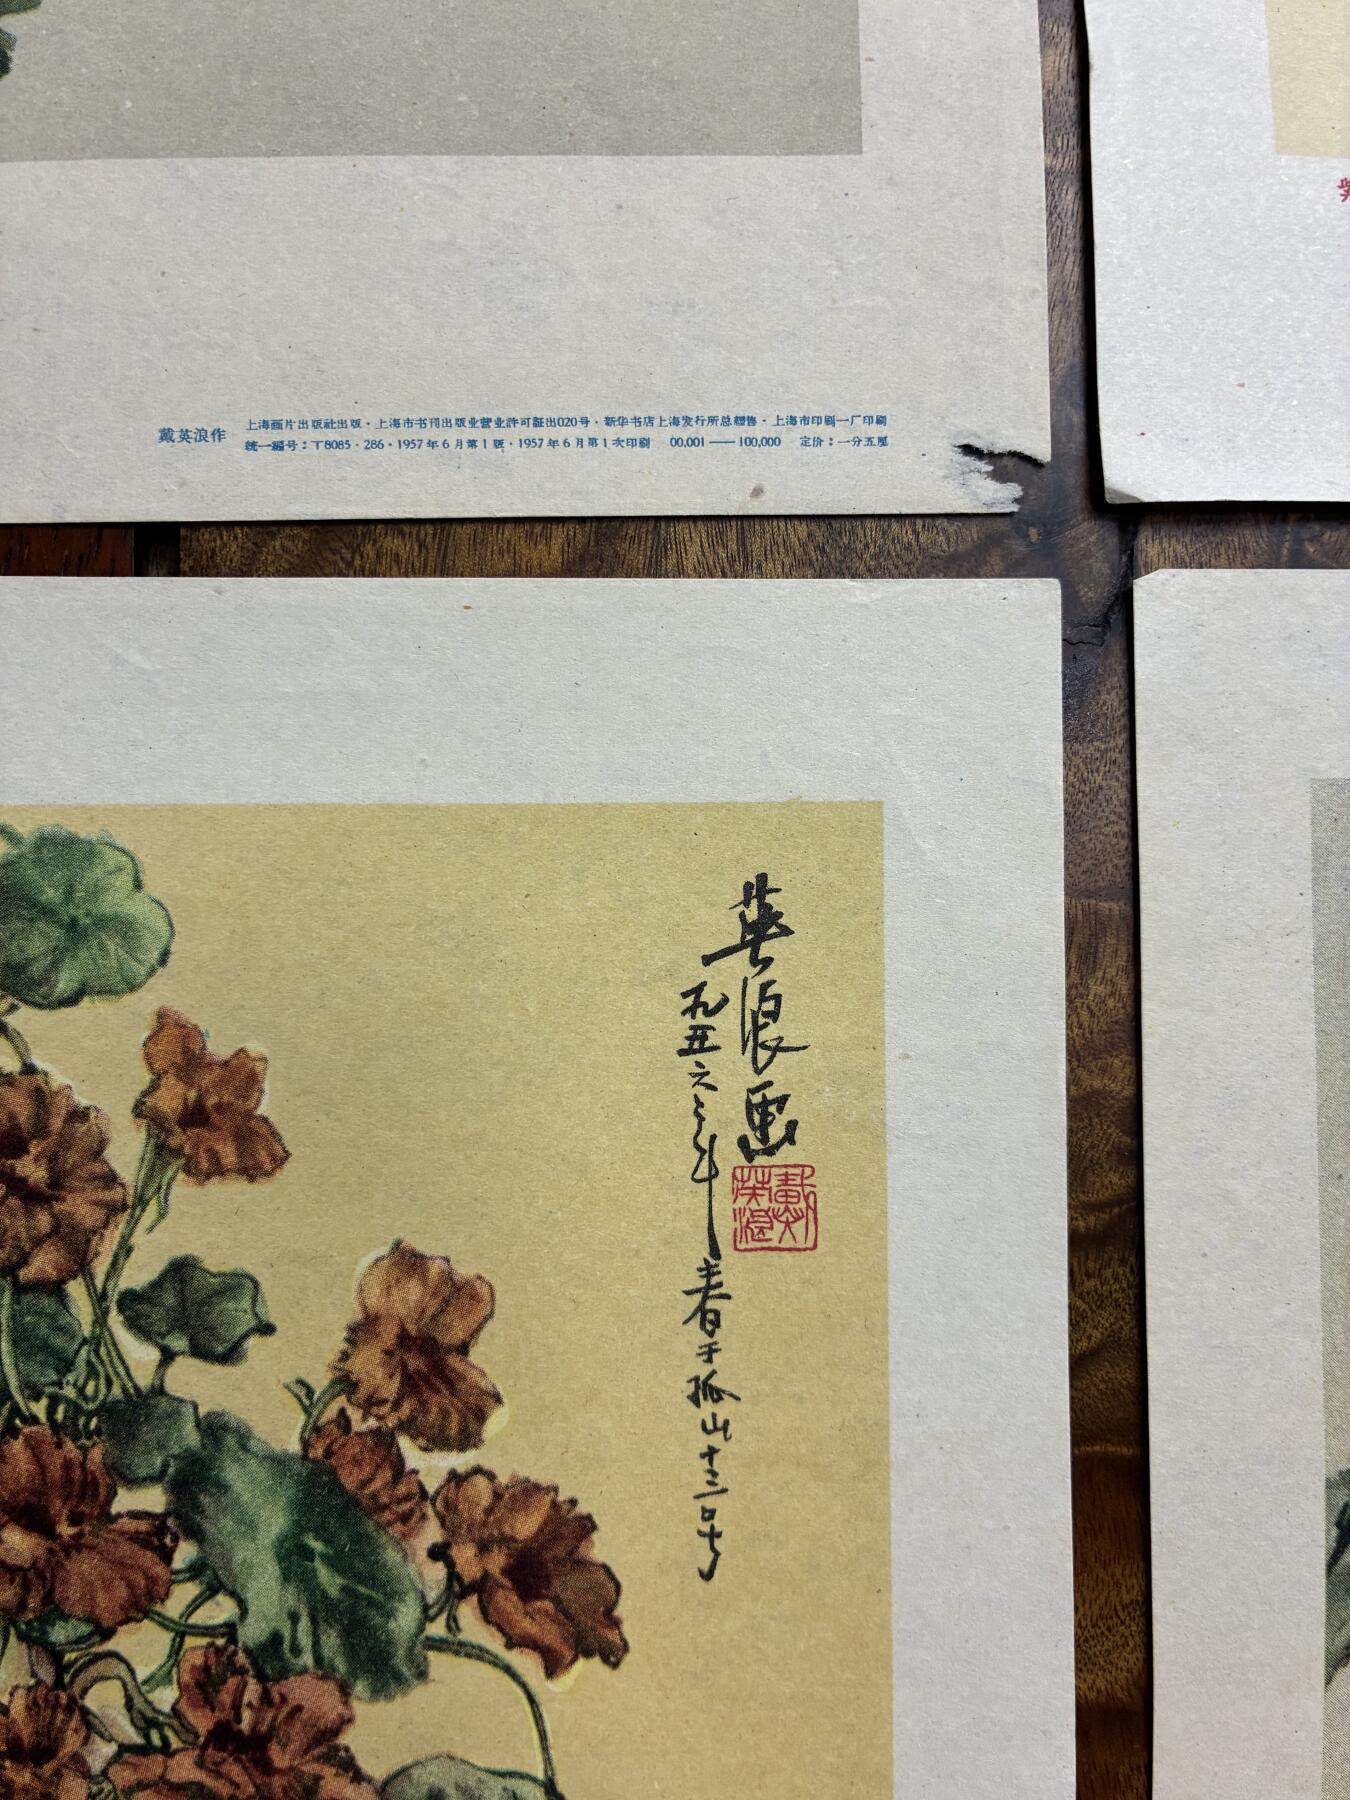 戴英浪作
上海画片出版社出版·上海市书刊出版业营业許可証出020号·新华书店上海发行所总經售·上海市印刷一厂印刷
統一編号：T8085·286·1957年6月第1版·1957年6月第1次印刷 00,001——100,000 定价：一分五厘
英浪画
一九五六年春于孤山十三号
戴英浪